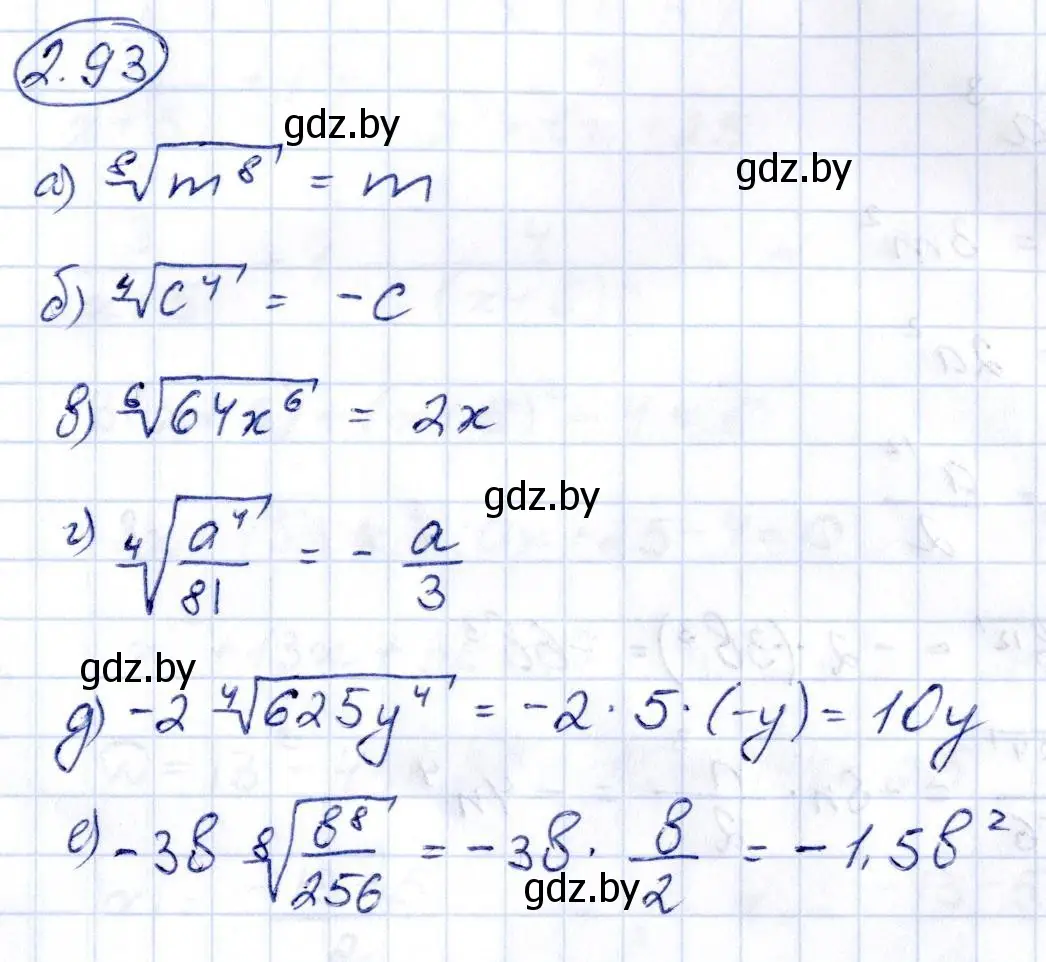 2.93
gdz.by
а) \sqrt[8]{m^8} = m
gdz.by
б) \sqrt[4]{c^4} = -c
в) \sqrt[6]{64x^6} = 2x
gdz.by
г) \sqrt[4]{\frac{a^4}{81}} = -\frac{a}{3}
gdz.by
д) -2\sqrt[4]{625y^4} = -2·5·(-y) = 10y
е) -3b\sqrt[8]{\frac{b^8}{256}} = -3b·\frac{b}{2} = -1,5b^2
gdz.by